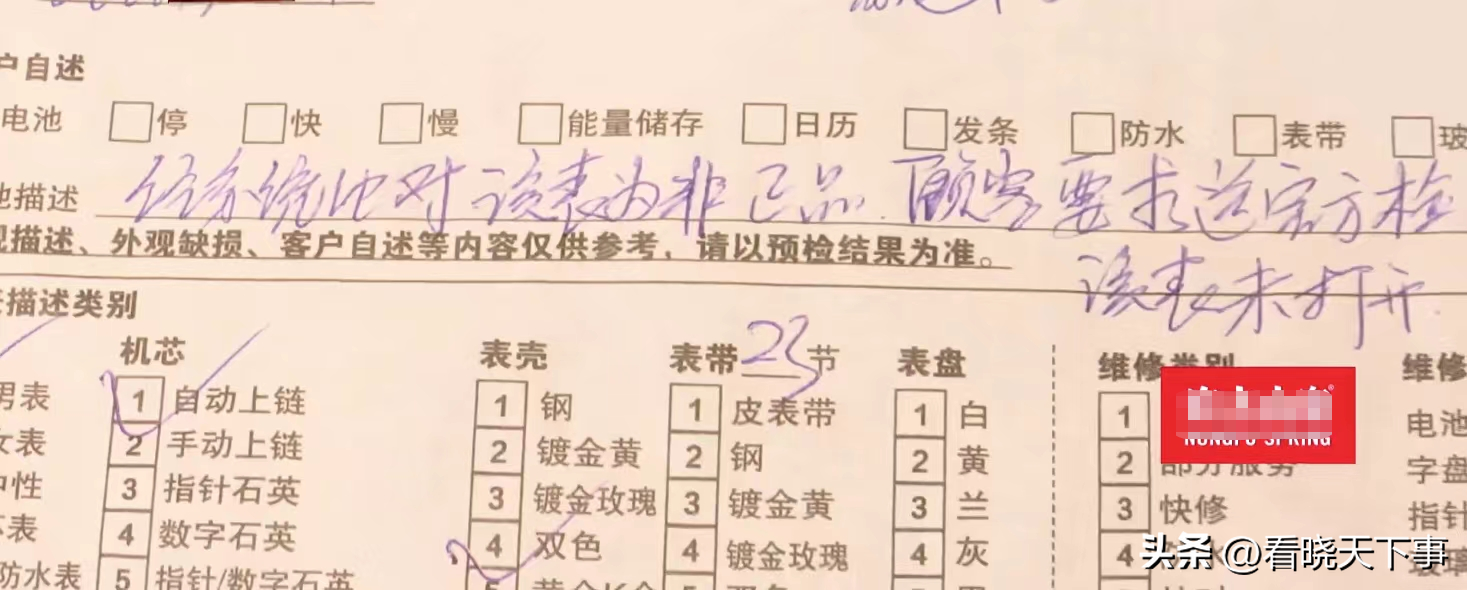 户自述
电池 停 快 慢 能量储存 日历 发条 防水 表带 玻
他描述 经系统比对该表为非正品.顾客要求送宗方检
观描述、外观缺损、客户自述等内容仅供参考，请以预检结果为准。
该表未打开.
描述类别
机芯 表壳 表带 23 节 表盘 维修类别 维修
男表 1 自动上链 1 钢 1 皮表带 1 白 1 电池
女表 2 手动上链 2 镀金黄 2 钢 2 黄 2 部分服务 字盘
中性 3 指针石英 3 镀金玫瑰 3 镀金黄 3 兰 3 快修 指针
表 4 数字石英 4 双色 4 镀金玫瑰 4 灰 4 玻璃
防水表 5 指针/数字石英 5
NONGFU SPRING
头条 @看晓天下事